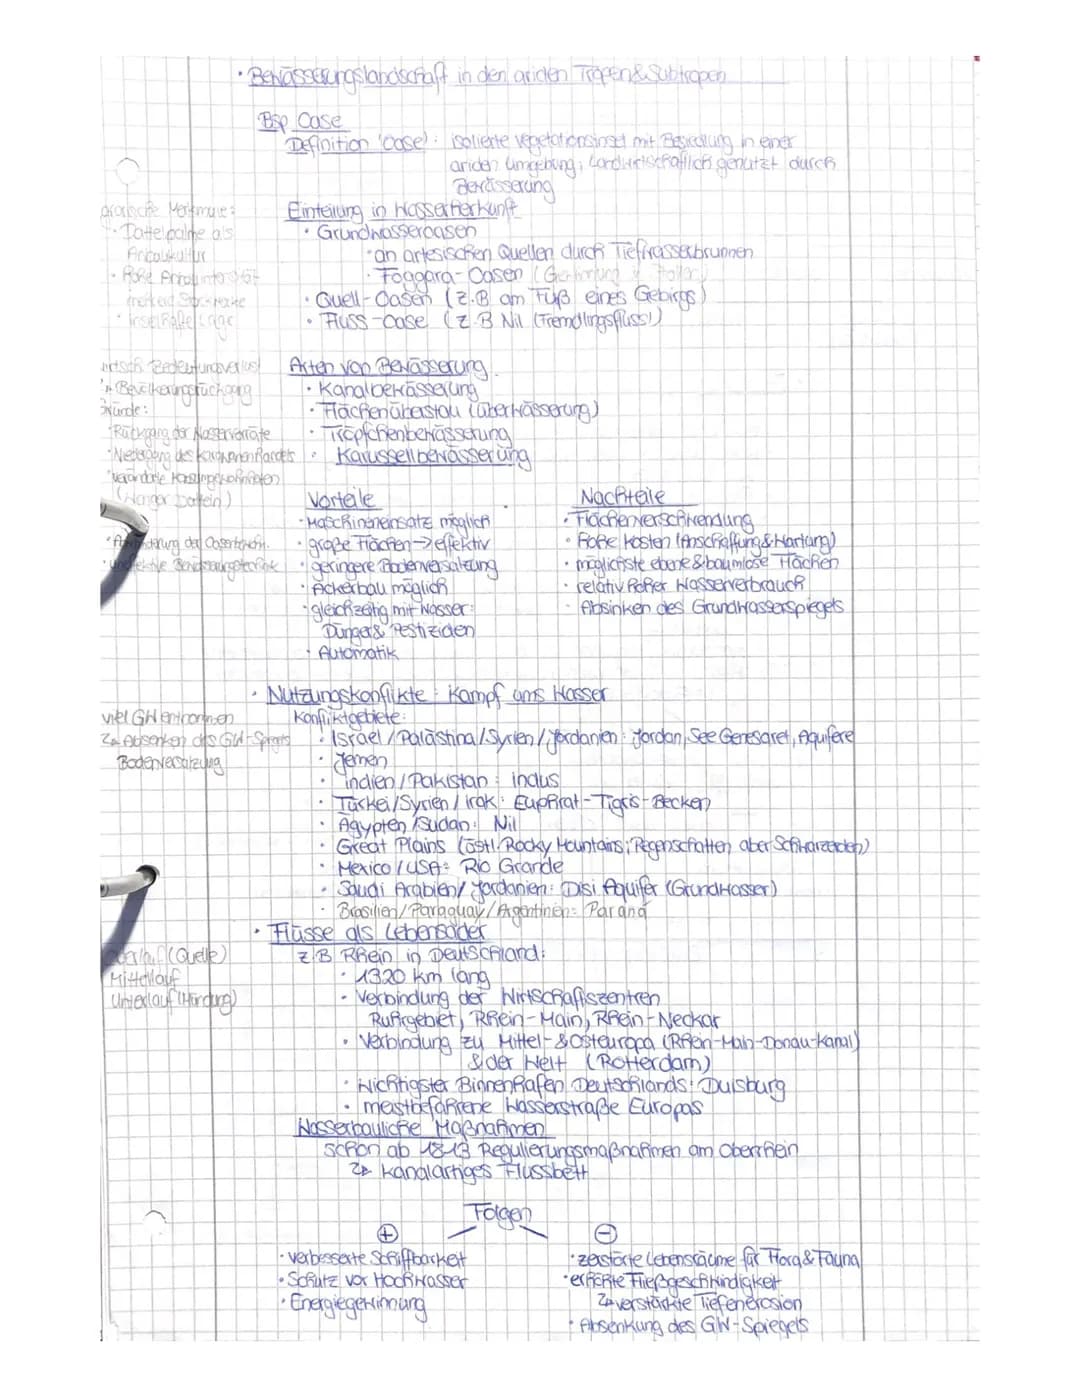 · Bewässerungslandschaft in den ariden Tropen & Subtropen
Bsp Oase
Definition 'Oase': isolierte Vegetationsinsel mit Besiedlung in einer
ariden Umgebung; Landwirtschaftlich genutzt durch
Bewässerung
Merkmale:
· Dattelpalme als
Anbaukultur
· hohe
· inselhafte Lage
Einteilung in Wasserherkunft
· Grundwasseroasen
· an artesischen Quellen durch Tiefwasserbrunnen
· Foggara-Oasen
· Quell-Oasen (z.B am Fuß eines Gebirgs)
· Fluss-Oase (z.B Nil (Fremdlingsfluss!)
Bedeutungsverlust
Bevölkerungsrückgang
Gründe:
· Rückgang der Wasservorräte
· Niedergang des Karawanenhandels
· veränderte
(weniger Datteln)
· Abwanderung der
Arten von Bewässerung
· Kanalbewässerung
· Flächenüberstau (Überwässerung)
· Tröpfchenbewässerung
· Karussellbewässerung
Vorteile
· Maschineneinsatz möglich
· große Flächen → effektiv
· geringere Bodenversalzung
· Ackerbau möglich
· gleichzeitig mit Wasser:
Dünger & Pestiziden
· Automatik
Nachteile
· Flächenverschwendung
· hohe Kosten (Anschaffung & Wartung)
· möglichste ebene & baumlose Flächen
· relativ hoher Wasserverbrauch
· Absinken des Grundwasserspiegels
· Nutzungskonflikte: Kampf ums Wasser
viel GW entnommen
↳ Absenken des GW-Spiegels
Bodenversalzung
Konfliktgebiete:
· Israel/Palästina/Syrien/Jordanien: Jordan, See Genesaret, Aquifere
· Jemen
· Indien/Pakistan: Indus
· Türkei/Syrien/Irak: Euphrat-Tigris-Becken
· Ägypten/Sudan: Nil
· Great Plains (östl. Rocky Mountains; Regenschatten aber Schwarzerden)
· Mexico/USA: Rio Grande
· Saudi Arabien/Jordanien: Disi Aquifer (Grundwasser)
· Brasilien/Paraguay/Agentinien: Paraná
· Flüsse als Lebensader
Oberlauf (Quelle)
Mittellauf
Unterlauf (Mündung)
z.B Rhein in Deutschland:
· 1320 km lang
· Verbindung der Wirtschaftszentren
Ruhrgebiet, Rhein-Main, Rhein-Neckar
· Verbindung zu Mittel- & Osteuropa (Rhein-Main-Donau-Kanal)
& der Welt (Rotterdam)
· wichtigster Binnenhafen Deutschlands: Duisburg
· meistbefahrene Wasserstraße Europas
Wasserbauliche Maßnahmen
schon ab 1813 Regulierungsmaßnahmen am Oberrhein
↳ kanalartiges Flussbett
Folgen
+
· verbesserte Schiffbarkeit
· Schutz vor Hochwasser
· Energiegewinnung
−
· zerstörte Lebensräume für Flora & Fauna
· erhöhte Fließgeschwindigkeit
↳ verstärkte Tiefenerosion
· Absenkung des GW-Spiegels